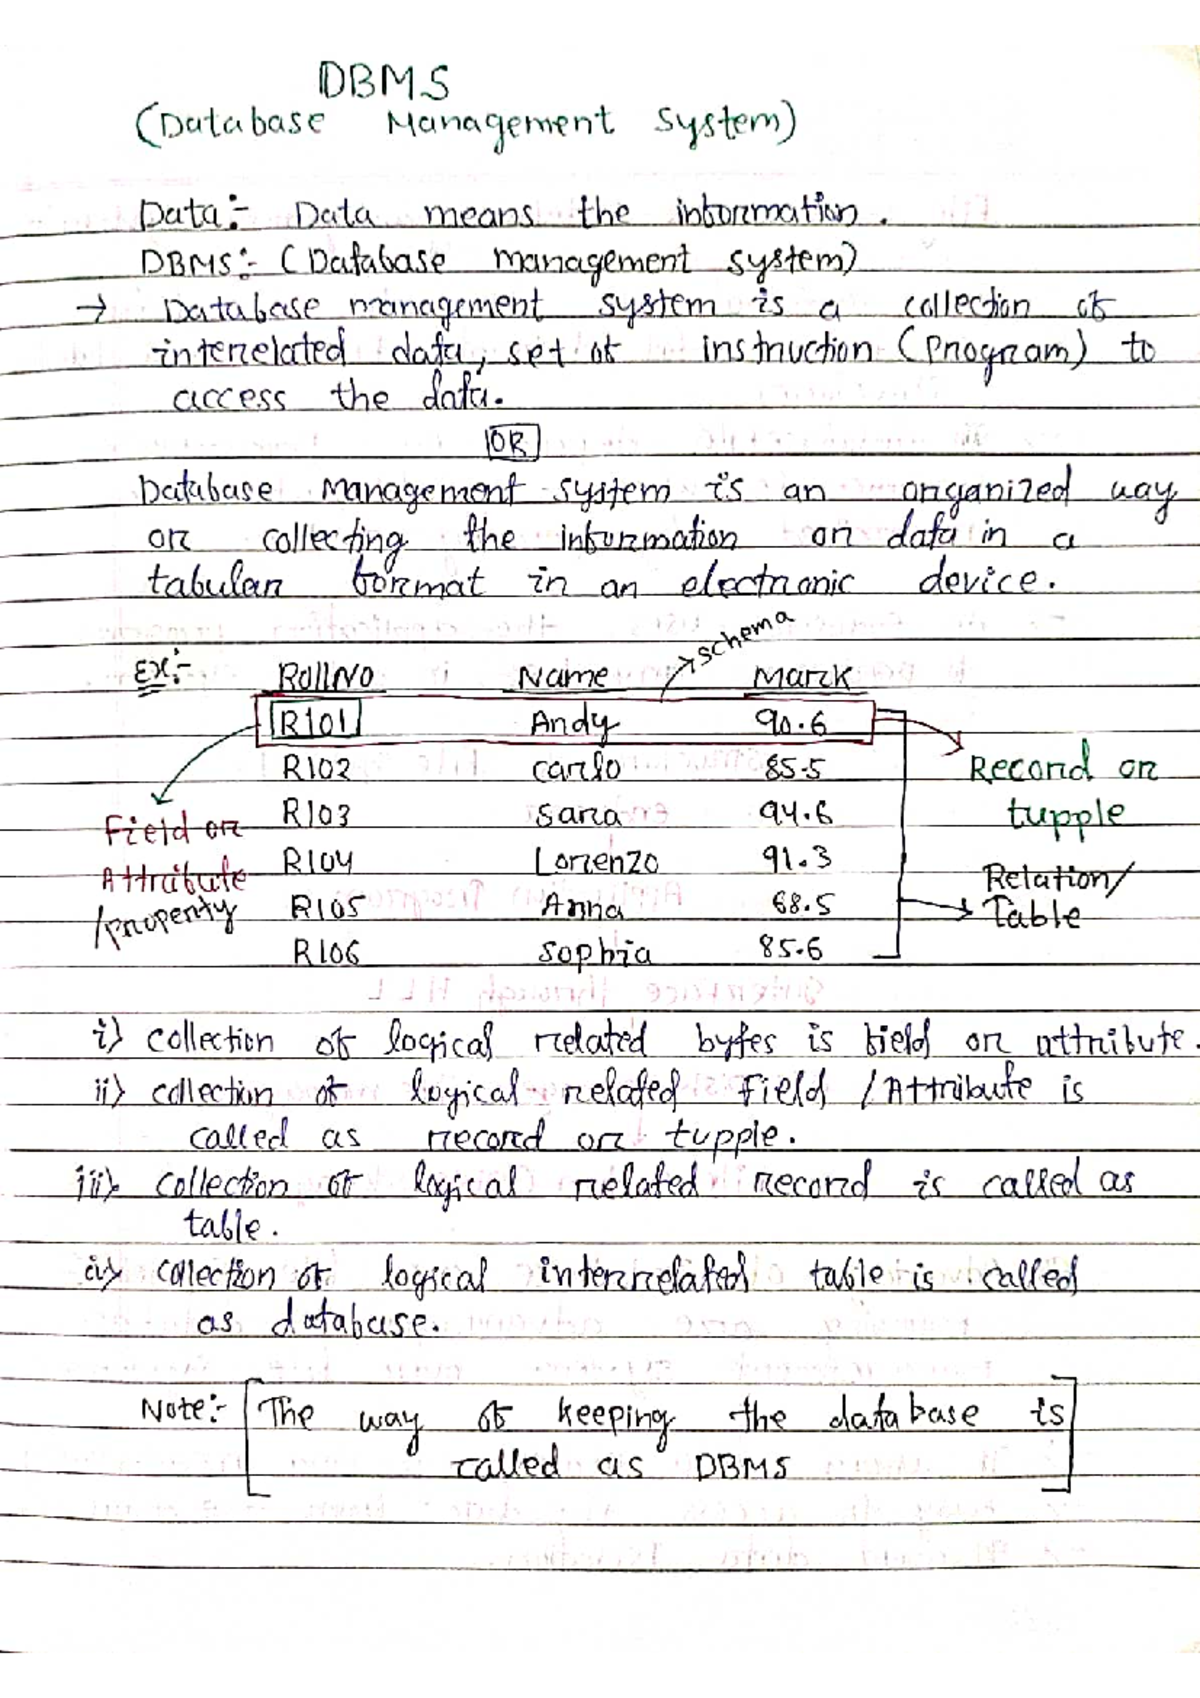 DBMS
(Database Management System)
Data:- Data means the information.
DBMS:- (Database management system)
→ Database management system is a collection of
interrelated data, set of instruction (program) to
access the data.
OR
Database Management system is an organized way
or collecting the information or data in a
tabular format in an electronic device.
schema
Ex:- RollNo Name Mark
R101 Andy 90.6
R102 Carlo 85.5
Record or
tupple
R103 Sara 94.6
Field or
Attribute
/property
R104 Lorenzo 91.3
Relation/
Table
R105 Anna 68.5
R106 Sophia 85.6
i) collection of logical related bytes is field or attribute.
ii) collection of logical related Field / Attribute is
called as record or tupple.
iii) collection of logical related record is called as
table.
iv) collection of logical interrelated table is called
as database.
Note:- [The way of keeping the database is
called as DBMS]